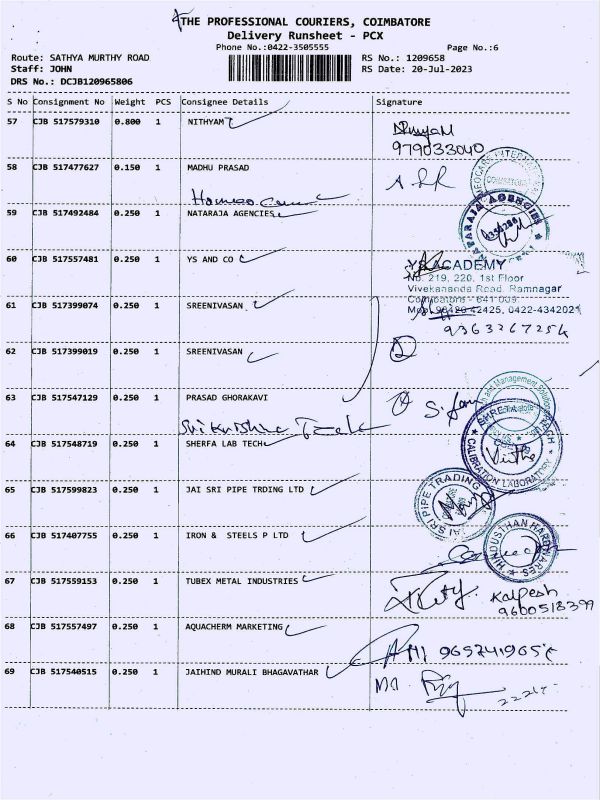 THE PROFESSIONAL COURIERS, COIMBATORE
Delivery Runsheet - PCX
Phone No.:0422-3505555 Page No.:6
Route: SATHYA MURTHY ROAD RS No.: 1209658
Staff: JOHN RS Date: 20-Jul-2023
DRS No.: DCJB120965806
S No Consignment No Weight PCS Consignee Details Signature
57 CJB 517579310 0.800 1 NITHYAM
979033040
58 CJB 517477627 0.150 1 MADHU PRASAD
59 CJB 517492484 0.250 1 NATARAJA AGENCIES
60 CJB 517557481 0.250 1 YS AND CO
YS ACADEMY
No. 219, 220, 1st Floor
Vivekananda Road, Ramnagar
Coimbatore - 641 009.
Mob: 98420 42425, 0422-4342021
61 CJB 517399074 0.250 1 SREENIVASAN
9363267254
62 CJB 517399019 0.250 1 SREENIVASAN
63 CJB 517547129 0.250 1 PRASAD GHORAKAVI
Sri Krishna
64 CJB 517548719 0.250 1 SHERFA LAB TECH
CALIBRATION LABORATORY
65 CJB 517599823 0.250 1 JAI SRI PIPE TRDING LTD
JAI SRI PIPE TRADING
66 CJB 517407755 0.250 1 IRON & STEELS P LTD
HINDUSTHAN HARDWARES
67 CJB 517559153 0.250 1 TUBEX METAL INDUSTRIES
Kalpesh
9600518399
68 CJB 517557497 0.250 1 AQUACHERM MARKETING
69 CJB 517540515 0.250 1 JAIHIND MURALI BHAGAVATHAR